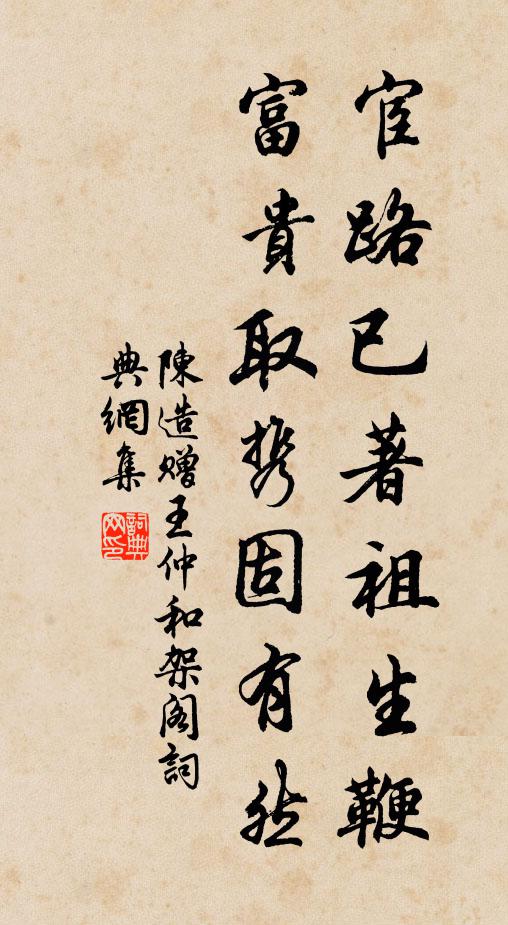 宦路已著祖生鞭
富貴取携固有然
陳造贈王仲和架阁詞
典網集
詞典
网印